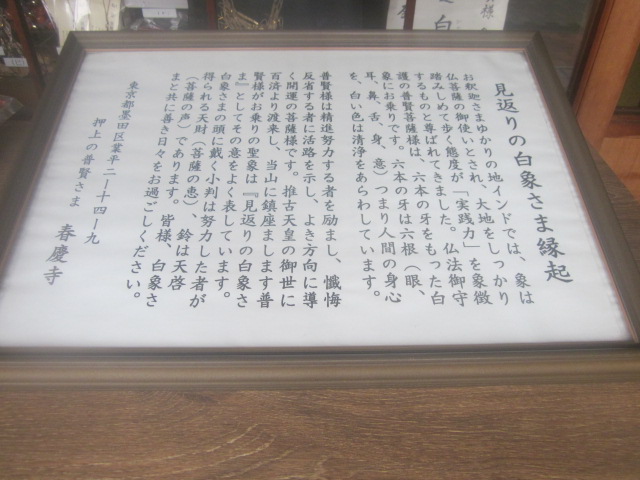 見返りの白象さま縁起
お釈迦さまゆかりの地インドでは、象は
仏菩薩の御使いとされ、大地をしっかり
踏みしめて歩く態度が「実践力」を象徴
するものと尊ばれてきました。仏法御守
護の普賢菩薩様は、六本の牙をもった白
象にお乗りです。六本の牙は六根（眼、
耳、鼻、舌、身、意）つまり人間の身心
を、白い色は清浄をあらわしています。
普賢様は精進努力する者を励まし、懺悔
反省する者に活路を示し、よき方向に導
く開運の菩薩様です。推古天皇の御世に
百済より渡来し、当山に鎮座まします普
賢様がお乗りの聖象は『見返りの白象さ
ま』としてその意をよく表しています。
白象さまの頭に戴く小判は努力した者が
得られる天財（菩薩の恵）、鈴は天啓
（菩薩の声）であります。皆様、白象さ
まと共に善き日々をお過ごしください。
東京都墨田区業平二ー十四ー九
押上の普賢さま　春慶寺
様
白